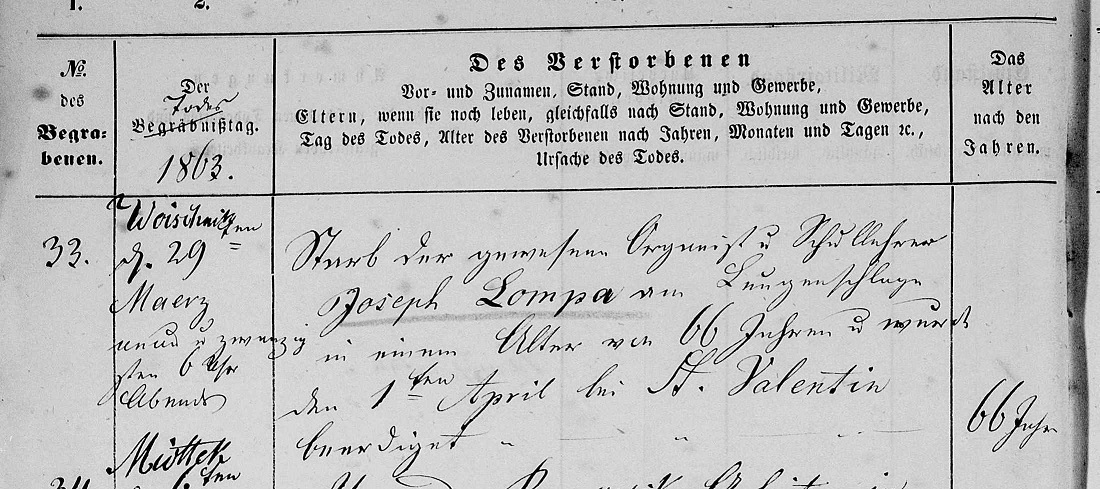 1. 2.
No.
des
Begra-
benen.
Der
Todes
Begräbnißtag.
1863.
Des Verstorbenen
Vor- und Zunamen, Stand, Wohnung und Gewerbe,
Eltern, wenn sie noch leben, gleichfalls nach Stand, Wohnung und Gewerbe,
Tag des Todes, Alter des Verstorbenen nach Jahren, Monaten und Tagen ꝛc.,
Ursache des Todes.
Das
Alter
nach den
Jahren.
33.
Woischnik
d. 29ten
Maerz
neun u zwanzig
sten 6 Uhr
Abends
Starb der gewesene Organist u Schullehrer
Joseph Lompa am Lungenschlage
in einem Alter von 66 Jahren u wurde
den 1ten April bei St. Valentin
beerdiget
66 Jahr
34
Miottek
6ten